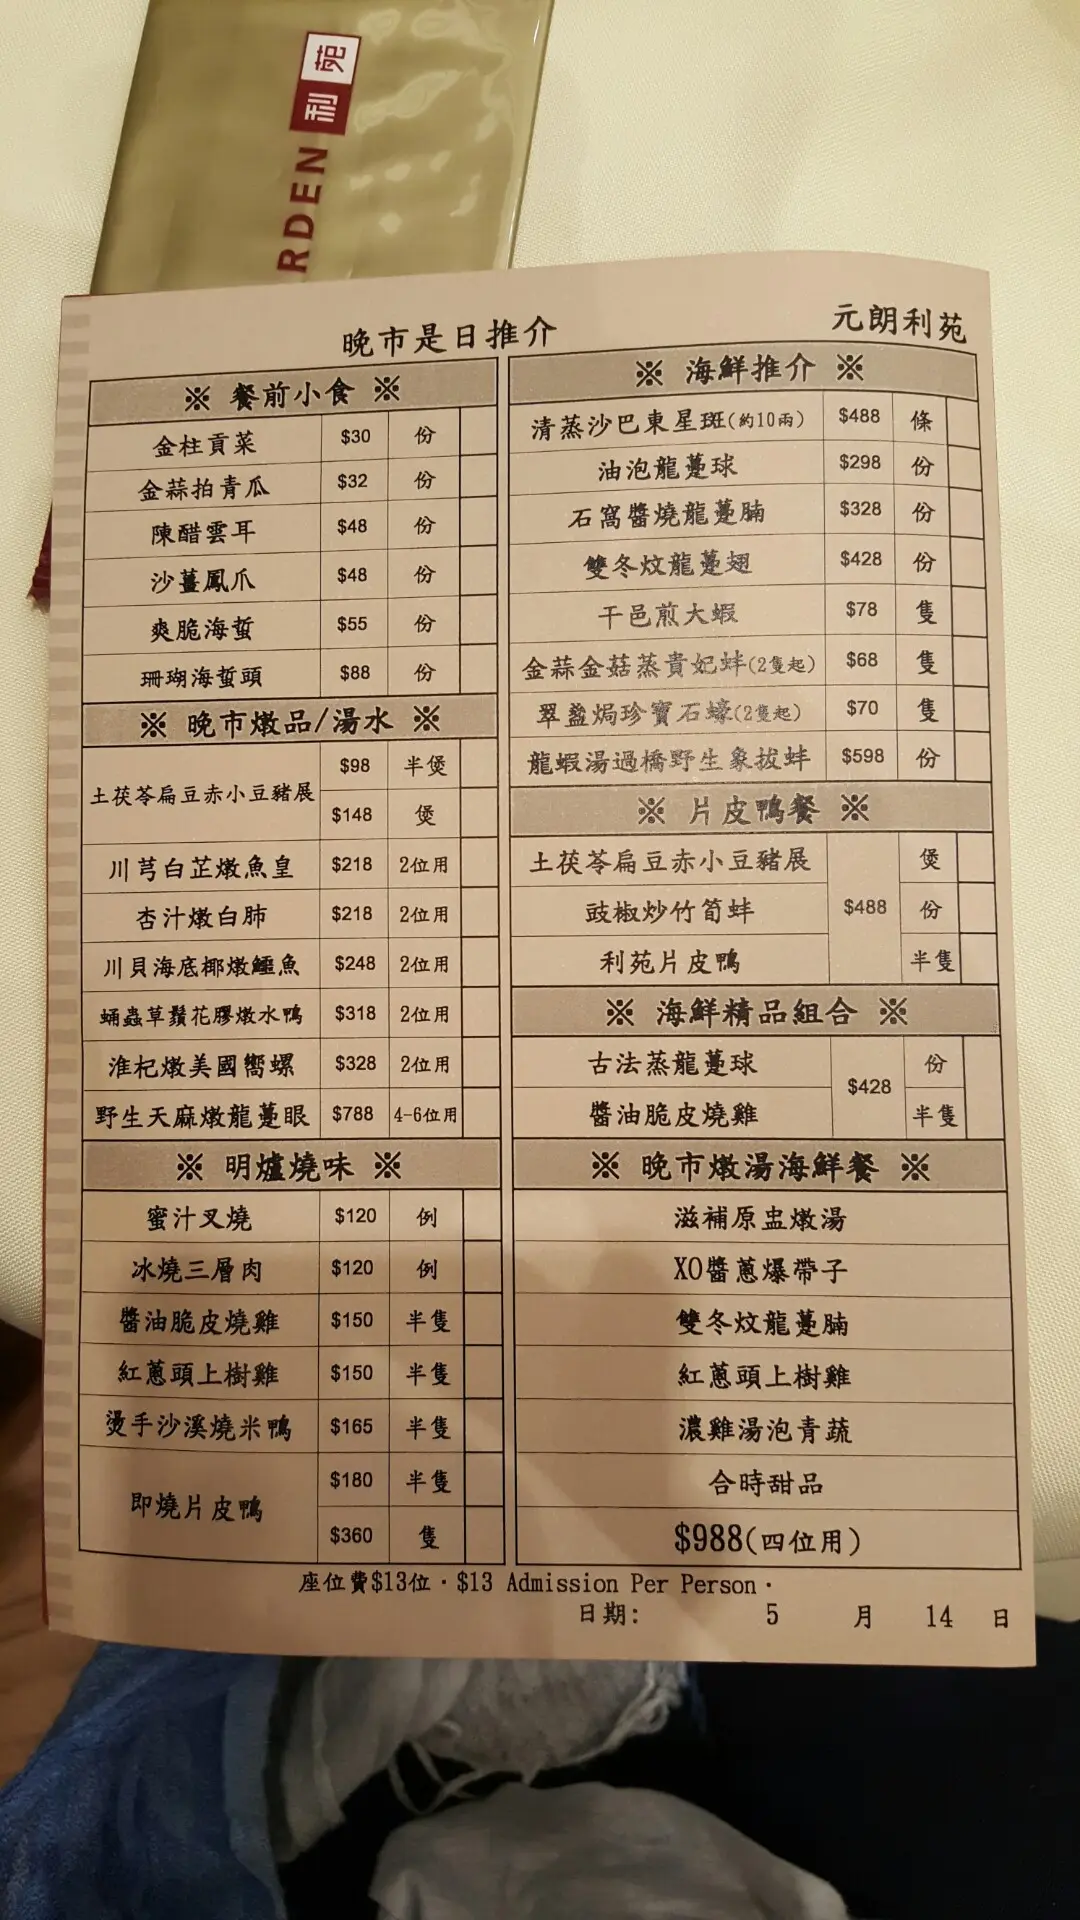 利苑
RDEN
晚市是日推介
元朗利苑
※ 餐前小食 ※
金柱貢菜 $30 份
金蒜拍青瓜 $32 份
陳醋雲耳 $48 份
沙薑鳳爪 $48 份
爽脆海蜇 $55 份
珊瑚海蜇頭 $88 份
※ 晚市燉品/湯水 ※
土茯苓扁豆赤小豆豬展 $98 半煲
$148 煲
川芎白芷燉魚皇 $218 2位用
杏汁燉白肺 $218 2位用
川貝海底椰燉鱷魚 $248 2位用
蛹蟲草鬚花膠燉水鴨 $318 2位用
淮杞燉美國嚮螺 $328 2位用
野生天麻燉龍躉眼 $788 4-6位用
※ 明爐燒味 ※
蜜汁叉燒 $120 例
冰燒三層肉 $120 例
醬油脆皮燒雞 $150 半隻
紅蔥頭上樹雞 $150 半隻
燙手沙溪燒米鴨 $165 半隻
即燒片皮鴨 $180 半隻
$360 隻
※ 海鮮推介 ※
清蒸沙巴東星斑(約10兩) $488 條
油泡龍躉球 $298 份
石窩醬燒龍躉腩 $328 份
雙冬炆龍躉翅 $428 份
干邑煎大蝦 $78 隻
金蒜金菇蒸貴妃蚌(2隻起) $68 隻
翠盞焗珍寶石蠔(2隻起) $70 隻
龍蝦湯過橋野生象拔蚌 $598 份
※ 片皮鴨餐 ※
土茯苓扁豆赤小豆豬展 煲
豉椒炒竹筍蚌 $488 份
利苑片皮鴨 半隻
※ 海鮮精品組合 ※
古法蒸龍躉球 $428 份
醬油脆皮燒雞 半隻
※ 晚市燉湯海鮮餐 ※
滋補原盅燉湯
XO醬蔥爆帶子
雙冬炆龍躉腩
紅蔥頭上樹雞
濃雞湯泡青蔬
合時甜品
$988(四位用)
座位費$13位·$13 Admission Per Person·
日期: 5 月 14 日